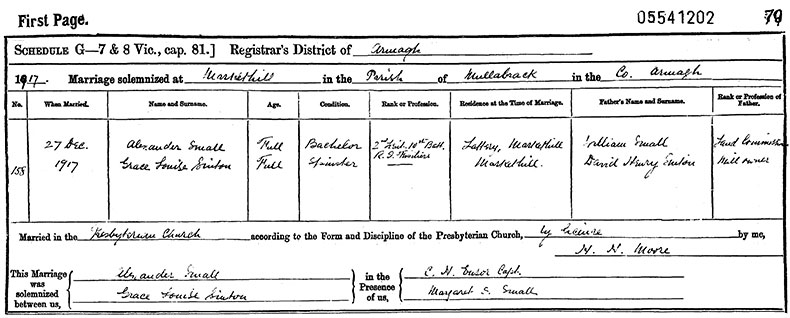 First Page. 05541202 79
SCHEDULE G—7 & 8 Vic., cap. 81.] Registrar's District of Armagh
1917. Marriage solemnized at Markethill in the Parish of Mullabrack in the Co. Armagh
No. When Married. Name and Surname. Age. Condition. Rank or Profession. Residence at the Time of Marriage. Father's Name and Surname. Rank or Profession of Father.
158 27 Dec. 1917 Alexander Small Full Bachelor 2nd Lieut. 10th Batt. R. I. Fusiliers Markethill William Small Land
Grace Louise Sinton Full Spinster Markethill. David Henry Sinton Mill owner
Married in the Presbyterian Church according to the Form and Discipline of the Presbyterian Church, by licence by me,
H. H. Moore
This Marriage was solemnized between us, Alexander Small in the Presence of us, C. H. Ensor Capt.
Grace Louise Sinton Margaret S. Small